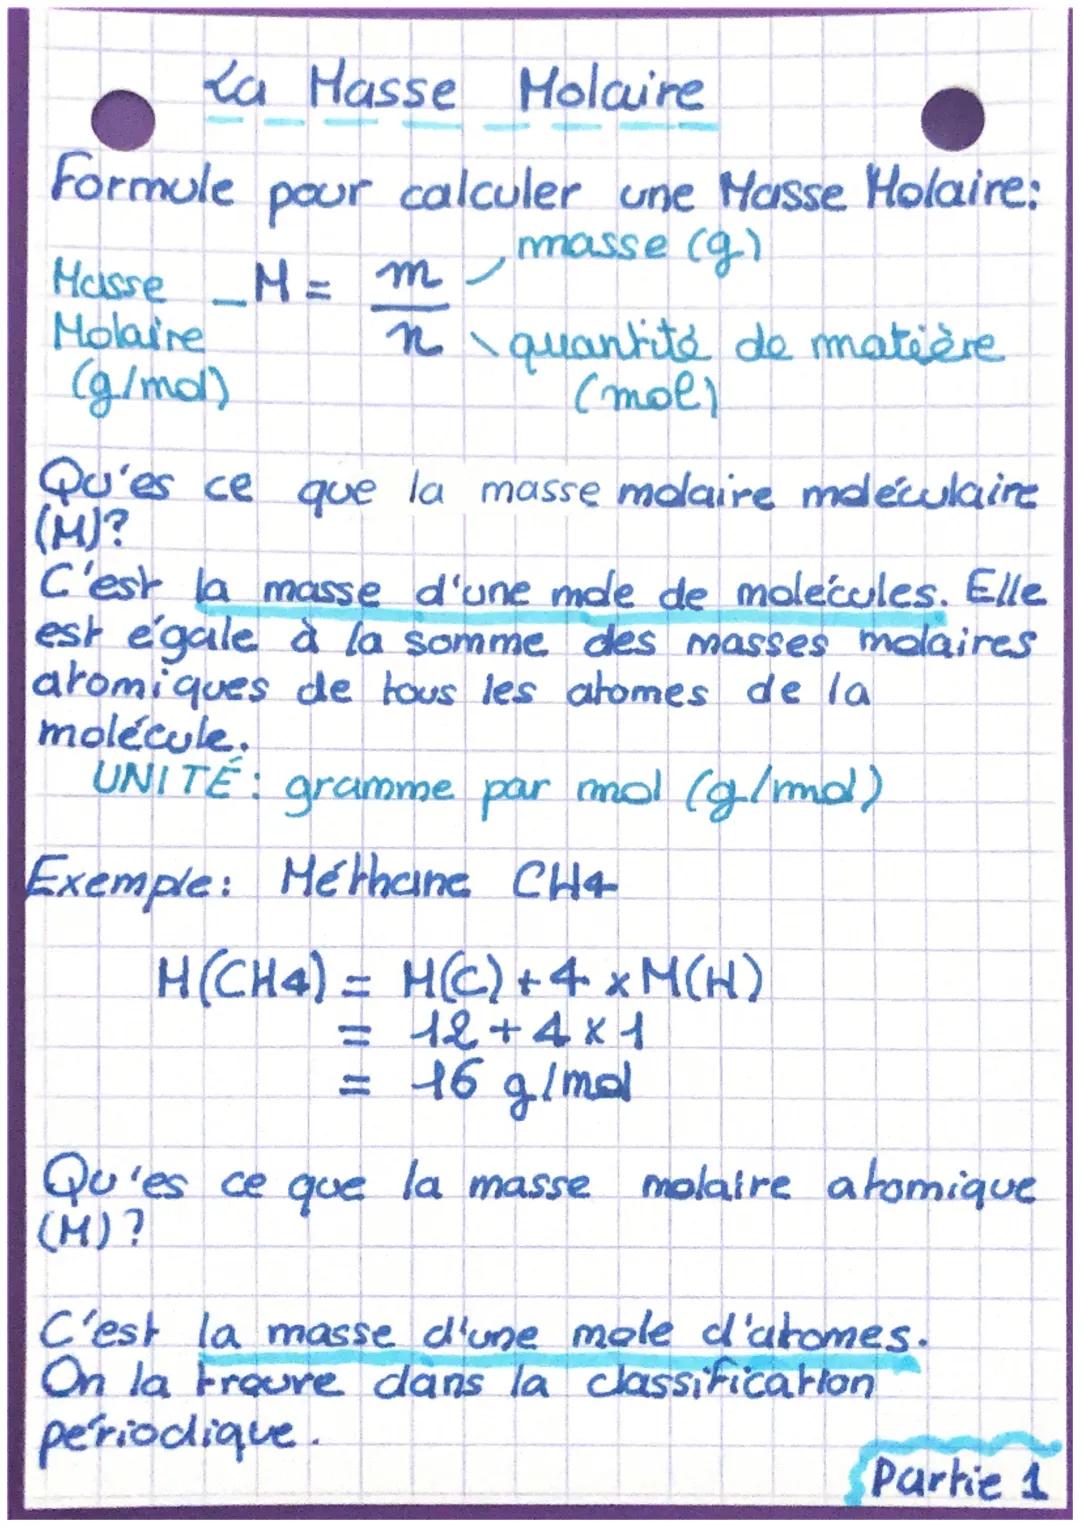 La Masse Molaire
Formule pour calculer une Masse Molaire:
masse (g)
Masse _ M = m
Molaire n quantité de matière
(g/mol) (mol)
Qu'es ce que la masse molaire moléculaire
(M)?
C'est la masse d'une mole de molécules. Elle
est égale à la somme des masses molaires
atomiques de tous les atomes de la
molécule.
UNITÉ: gramme par mol (g/mol)
Exemple: Méthane CH4
M(CH4) = M(C) + 4 x M(H)
= 12 + 4 x 1
= 16 g/mol
Qu'es ce que la masse molaire atomique
(M)?
C'est la masse d'une mole d'atomes.
On la trouve dans la classification
périodique.
Partie 1